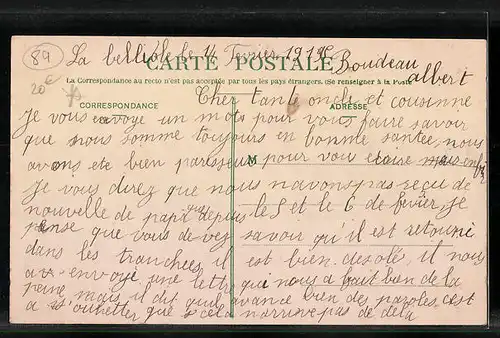 89
20€
La belliole le 14 Fevrier 1919
Boudeau
albert
CARTE POSTALE
La Correspondance au recto n'est pas acceptée par tous les pays étrangers. (Se renseigner à la Poste
CORRESPONDANCE
ADRESSE
M
Cher tante oncle et cousinne
Je vous envoye un mots pour vous faire savoir
que nous somme toujours en bonne santee, nous
avons ete bien paresseux pour vou ecrire mais enfin
Je vous direz que nous navons pas reçu de
nouvelle de papa que depuis le 5 et le 6 de fevier, je
pense que vous devez savoir qu'il est retourné
dans les tranchees, il est bien desolé, il nous
av envoyé une lettre qui nous a fait bien de la
peine, mais il dit quel avance bien des paroles, cest
a souhetter que cela narrive pas de dela